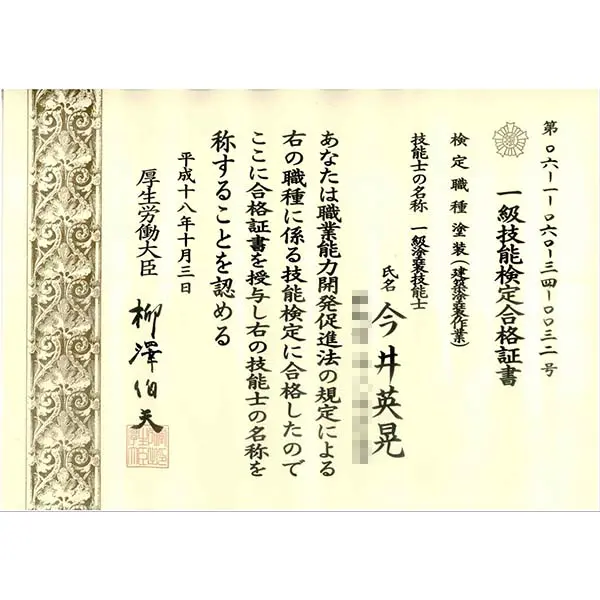 第〇六-一-〇六〇-三四-〇〇三二号
一級技能検定合格証書
検定職種 塗装(建築塗装作業)
技能士の名称 一級塗装技能士
氏名 今井英晃
あなたは職業能力開発促進法の規定による
右の職種に係る技能検定に合格したので
ここに合格証書を授与し右の技能士の名称を
称することを認める
平成十八年十月三日
厚生労働大臣 柳澤伯夫